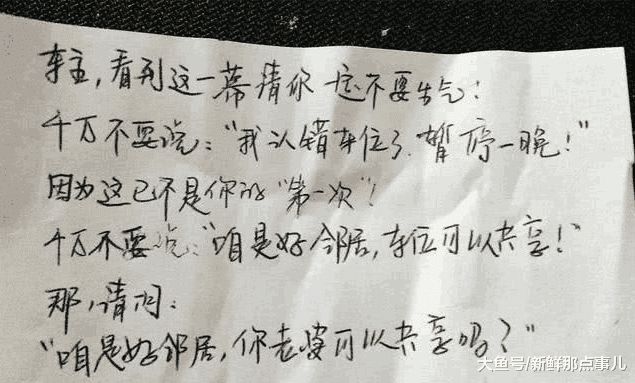 车主,看到这一幕请你一定不要生气!
千万不要说:"我认错车位了.暂停一晚!"
因为这已不是你的"第一次"!
千万不要说:"咱是好邻居,车位可以共享!"
那,请问:
"咱是好邻居,你老婆可以共享吗?"
大鱼号/新鲜那点事儿